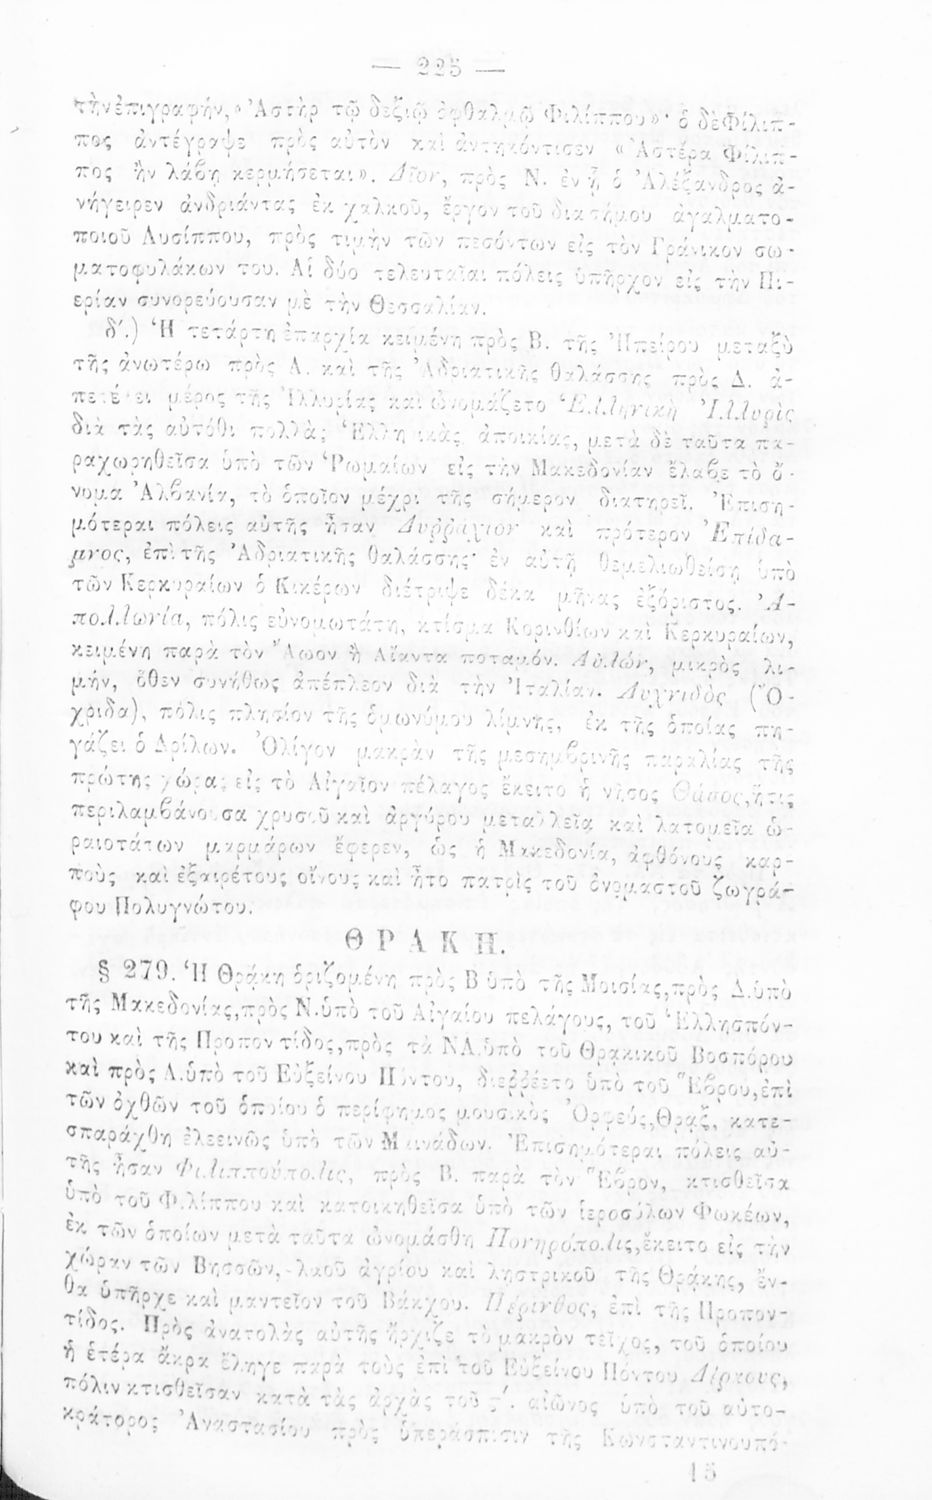 — 225 —
τὴνἐπιγραφήν,« Ἀστὴρ τῷ δεξιῷ ὀφθαλμῷ Φιλίππου»· ὁ δὲΦίλιπ-
πος ἀντέγραψε πρὸς αὐτὸν καὶ ἀντηκόντισεν « Ἀστέρα Φίλιπ-
πος ἢν λάβῃ κερμήσεται». Δῖον, πρὸς Ν. ἐν ᾗ ὁ Ἀλέξανδρος ἀ-
νήγειρεν ἀνδριάντας ἐκ χαλκοῦ, ἔργον τοῦ διασήμου ἀγαλματο-
ποιοῦ Λυσίππου, πρὸς τιμὴν τῶν πεσόντων εἰς τὸν Γράνικον σω-
ματοφυλάκων του. Αἱ δύο τελευταῖαι πόλεις ὑπῆρχον εἰς τὴν Πι-
ερίαν συνορεύουσαν μὲ τὴν Θεσσαλίαν.
δ΄.) Ἡ τετάρτη ἐπαρχία κειμένη πρὸς Β. τῆς Ἠπείρου μεταξὺ
τῆς ἀνωτέρω πρὸς Α. καὶ τῆς Ἀδριατικῆς θαλάσσης πρὸς Δ. ἀ-
πετέλει μέρος τῆς Ἰλλυρίας καὶ ὠνομάζετο Ἑλληνικὴ Ἰλλυρὶς
διὰ τὰς αὐτόθι πολλὰς Ἑλληνικὰς ἀποικίας, μετὰ δὲ ταῦτα πα-
ραχωρηθεῖσα ὑπὸ τῶν Ῥωμαίων εἰς τὴν Μακεδονίαν ἔλαβε τὸ ὄ-
νομα Ἀλβανία, τὸ ὁποῖον μέχρι τῆς σήμερον διατηρεῖ. Ἐπιση-
μότεραι πόλεις αὐτῆς ἦταν Δυῤῥάχιον καὶ πρότερον Ἐπίδα-
μνος, ἐπὶ τῆς Ἀδριατικῆς θαλάσσης· ἐν αὐτῇ θεμελιωθείσῃ ὑπὸ
τῶν Κερκυραίων ὁ Κικέρων διέτριψε δέκα μῆνας ἐξόριστος. Ἀ-
πολλωνία, πόλις εὐνομωτάτη, κτίσμα Κορινθίων καὶ Κερκυραίων,
κειμένη παρὰ τὸν Ἄωον ἢ Αἴαντα ποταμόν. Αὐλών, μικρὸς λι-
μήν, ὅθεν συνήθως ἀπέπλεον διὰ τὴν Ἰταλίαν. Λυχνιδὸς (Ὄ-
χριδα), πόλις πλησίον τῆς ὁμωνύμου λίμνης, ἐκ τῆς ὁποίας πη-
γάζει ὁ Δρίλων. Ὀλίγον μακρὰν τῆς μεσημβρινῆς παραλίας τῆς
πρώτης χώρας εἰς τὸ Αἰγαῖον πέλαγος ἔκειτο ἡ νῆσος Θάσος,ἥτις
περιλαμβάνουσα χρυσοῦ καὶ ἀργύρου μεταλλεῖα καὶ λατομεῖα ὡ-
ραιοτάτων μαρμάρων ἔφερεν, ὡς ἡ Μακεδονία, ἀφθόνους καρ-
ποὺς καὶ ἐξαιρέτους οἴνους καὶ ἦτο πατρὶς τοῦ ὀνομαστοῦ ζωγρά-
φου Πολυγνώτου.
ΘΡΑΚΗ.
§ 279. Ἡ Θράκη ὁριζομένη πρὸς Β ὑπὸ τῆς Μοισίας,πρὸς Δ.ὑπὸ
τῆς Μακεδονίας,πρὸς Ν.ὑπὸ τοῦ Αἰγαίου πελάγους, τοῦ Ἑλλησπόν-
του καὶ τῆς Προποντίδος,πρὸς τὰ ΝΑ.ὑπὸ τοῦ Θρακικοῦ Βοσπόρου
καὶ πρὸς Α.ὑπὸ τοῦ Εὐξείνου Πόντου, διεῤῥέετο ὑπὸ τοῦ Ἕβρου,ἐπὶ
τῶν ὀχθῶν τοῦ ὁποίου ὁ περίφημος μουσικὸς Ὀρφεύς,Θρᾷξ, κατε-
σπαράχθη ἐλεεινῶς ὑπὸ τῶν Μαινάδων. Ἐπισημότεραι πόλεις αὐ-
τῆς ἦσαν Φιλιππούπολις, πρὸς Β. παρὰ τὸν Ἕβρον, κτισθεῖσα
ὑπὸ τοῦ Φιλίππου καὶ κατοικηθεῖσα ὑπὸ τῶν ἱεροσύλων Φωκέων,
ἐκ τῶν ὁποίων μετὰ ταῦτα ὠνομάσθη Πονηρόπολις,ἔκειτο εἰς τὴν
χώραν τῶν Βησσῶν, λαοῦ ἀγρίου καὶ λῃστρικοῦ τῆς Θράκης, ἔν-
θα ὑπῆρχε καὶ μαντεῖον τοῦ Βάκχου. Πέρινθος, ἐπὶ τῆς Προπον-
τίδος. Πρὸς ἀνατολὰς αὐτῆς ἤρχιζε τὸ μακρὸν τεῖχος, τοῦ ὁποίου
ἡ ἑτέρα ἄκρα ἔληγε παρὰ τοὺς ἐπὶ τοῦ Εὐξείνου Πόντου Δέρκους,
πόλιν κτισθεῖσαν κατὰ τὰς ἀρχὰς τοῦ ϛ΄. αἰῶνος ὑπὸ τοῦ αὐτο-
κράτορος Ἀναστασίου πρὸς ὑπεράσπισιν τῆς Κωνσταντινουπό-
15